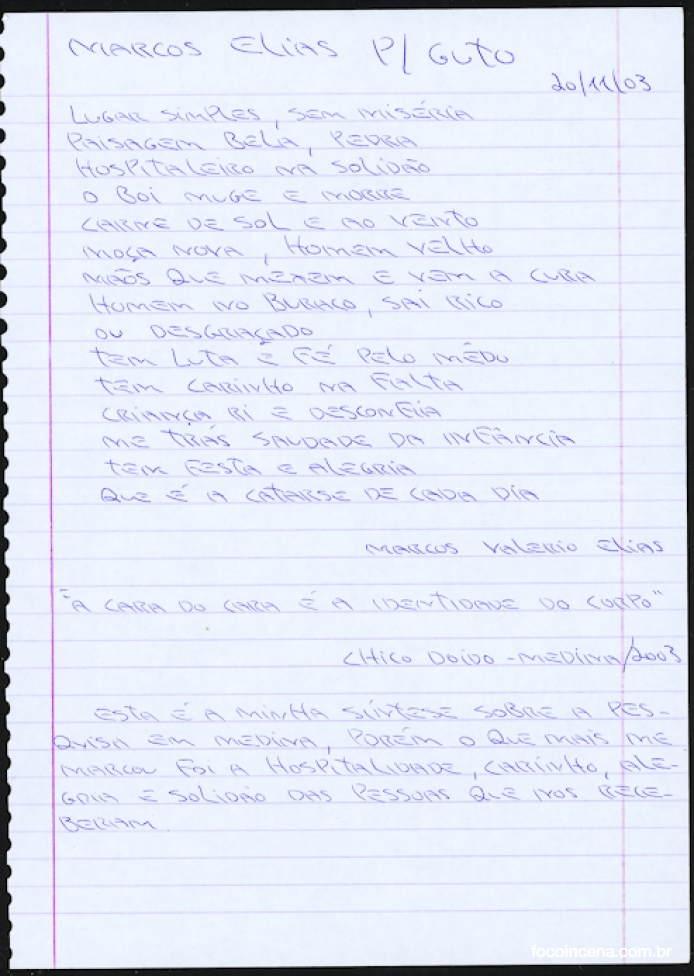 MARCOS ELIAS P/ GUTO
20/11/03
LUGAR SIMPLES, SEM MISÉRIA
PAISAGEM BELA, PEDRA
HOSPITALEIRO NA SOLIDÃO
O BOI MUGE E MORRE
CARNE DE SOL E AO VENTO
MOÇA NOVA, HOMEM VELHO
MÃOS QUE MEXEM E VEM A CURA
HOMEM NO BURACO, SAI RICO
OU DESGRAÇADO
TEM LUTA E FÉ PELO MÊDO
TEM CARINHO NA FALTA
CRIANÇA RI E DESCONFIA
ME TRÁS SAUDADE DA INFÂNCIA
TEM FESTA E ALEGRIA
QUE É A CATARSE DE CADA DIA
MARCOS VALERIO ELIAS
"A CARA DO CARA É A IDENTIDADE DO CORPO"
CHICO DOIDO - MEDINA/2003
ESTA É A MINHA SÍNTESE SOBRE A PES-
QUISA EM MEDINA, PORÉM O QUE MAIS ME
MARCOU FOI A HOSPITALIDADE, CARINHO, ALE-
GRIA E SOLIDÃO DAS PESSOAS QUE NOS RECE-
BERAM.
focoincena.com.br